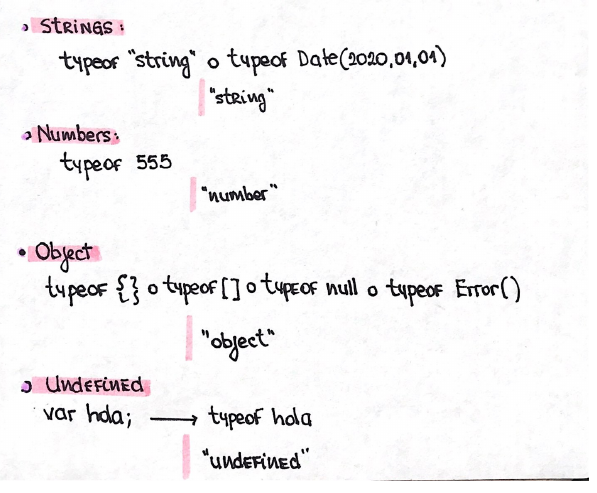 • STRINGS:
typeof "string" o typeof Date(2020,01,01)
"string"
• Numbers:
typeof 555
"number"
• Object
typeof {} o typeof [] o typeof null o typeof Error()
"object"
• Undefined
var hola; ⟶ typeof hola
"undefined"